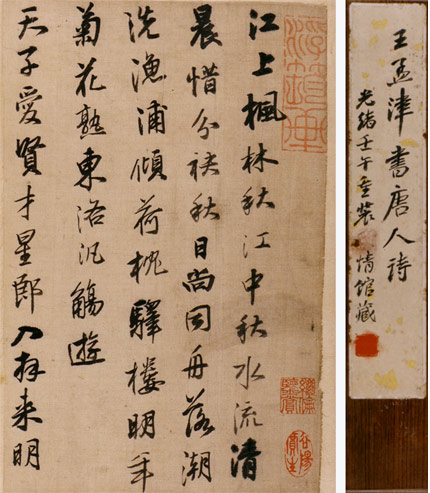 王孟津書唐人詩
光緒壬午重裝 情館藏
江上楓林秋江中秋水流清
晨惜分袂秋日尚同舟落潮
洗漁浦傾荷枕驛樓明年
菊花熟東洛汎觴遊
天子愛賢才星郎入拜來明